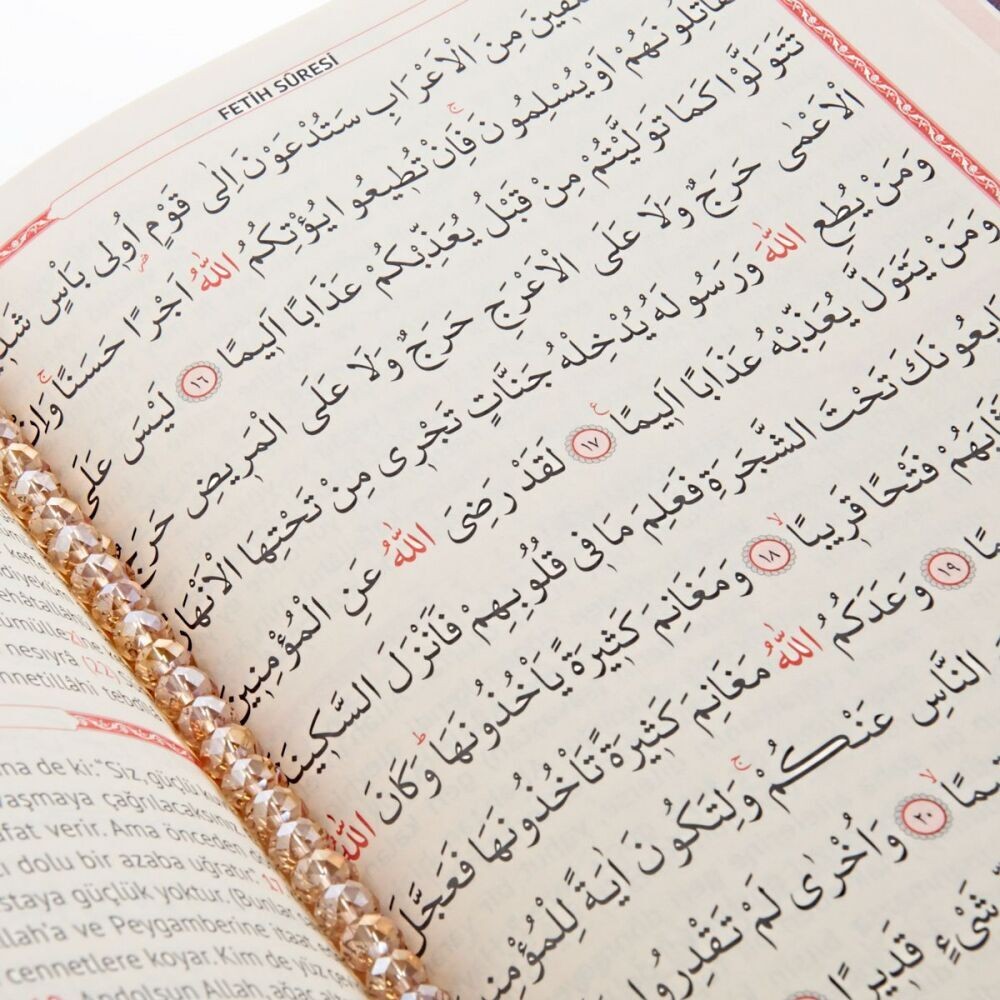 FETİH SÛRESİ
ـفينَ مِنَ الْاَعْرَابِ سَتُدْعَوْنَ اِلٰى قَوْمٍ اُولى بَأْسٍ
تُقَاتِلُونَهُمْ اَوْ يُسْلِمُونَ فَاِنْ تُطيعُوا يُؤْتِكُمُ اللّٰهُ اَجْرًا حَسَنًا وَاِنْ
تَتَوَلَّوْا كَمَا تَوَلَّيْتُمْ مِنْ قَبْلُ يُعَذِّبْكُمْ عَذَابًا اَليمًا ١٦ لَيْسَ عَلَى
الْاَعْمٰى حَرَجٌ وَلَا عَلَى الْاَعْرَجِ حَرَجٌ وَلَا عَلَى الْمَريضِ حَرَجٌ
وَمَنْ يُطِعِ اللّٰهَ وَرَسُولَهُ يُدْخِلْهُ جَنَّاتٍ تَجْرى مِنْ تَحْتِهَا الْاَنْهَارُ
وَمَنْ يَتَوَلَّ يُعَذِّبْهُ عَذَابًا اَليمًا ١٧ لَقَدْ رَضِىَ اللّٰهُ عَنِ الْمُؤْمِنينَ
ـايِعُونَكَ تَحْتَ الشَّجَرَةِ فَعَلِمَ مَا فى قُلُوبِهِمْ فَاَنْزَلَ السَّكينَةَ
ـثَابَهُمْ فَتْحًا قَريبًا ١٨ وَمَغَانِمَ كَثيرَةً يَأْخُذُونَهَا وَكَانَ اللّٰهُ
ـمًا ١٩ وَعَدَكُمُ اللّٰهُ مَغَانِمَ كَثيرَةً تَأْخُذُونَهَا فَعَجَّلَ
النَّاسِ عَنْكُمْ وَلِتَكُونَ اٰيَةً لِلْمُؤْمِنـ
ـيمًا ٢٠ وَاُخْرٰى لَمْ تَقْدِرُوا
شَىْءٍ قَديرًا
nesıyrâ (22)
nnetillâhi tebd
na de ki: "Siz, güçlü
vaşmaya çağrılacaksınız
fat verir. Ama önceden
cı dolu bir azaba uğratır."
staya güçlük yoktur. (Bunlar
llah'a ve Peygamberine itaat
cennetlere koyar. Kim de yüz
Andolsun Allah, ağaç alt